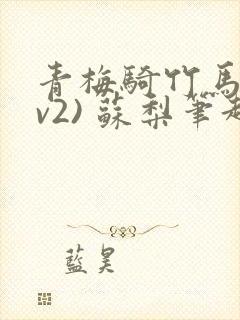 青梅騎竹馬
v2) 蘇梨筆趣
藍昊